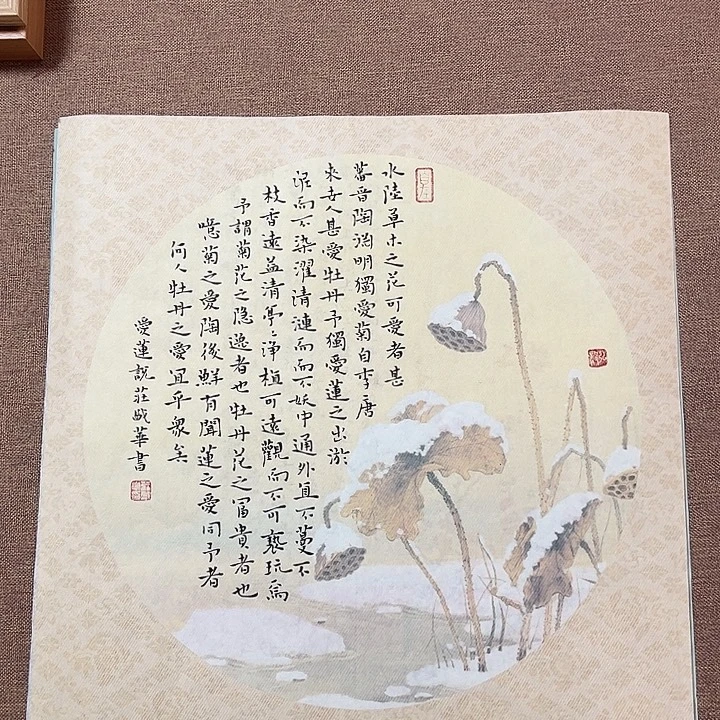 水陸草木之花可愛者甚
蕃晉陶淵明獨愛菊自李唐
來世人甚愛牡丹予獨愛蓮之出淤
泥而不染濯清漣而而不妖中通外直不蔓不
枝香遠益清亭〻淨植可遠觀而不可褻玩焉
予謂菊花之隱逸者也牡丹花之富貴者也
噫菊之愛陶後鮮有聞蓮之愛同予者
何人牡丹之愛宜乎眾矣
愛蓮說莊華書